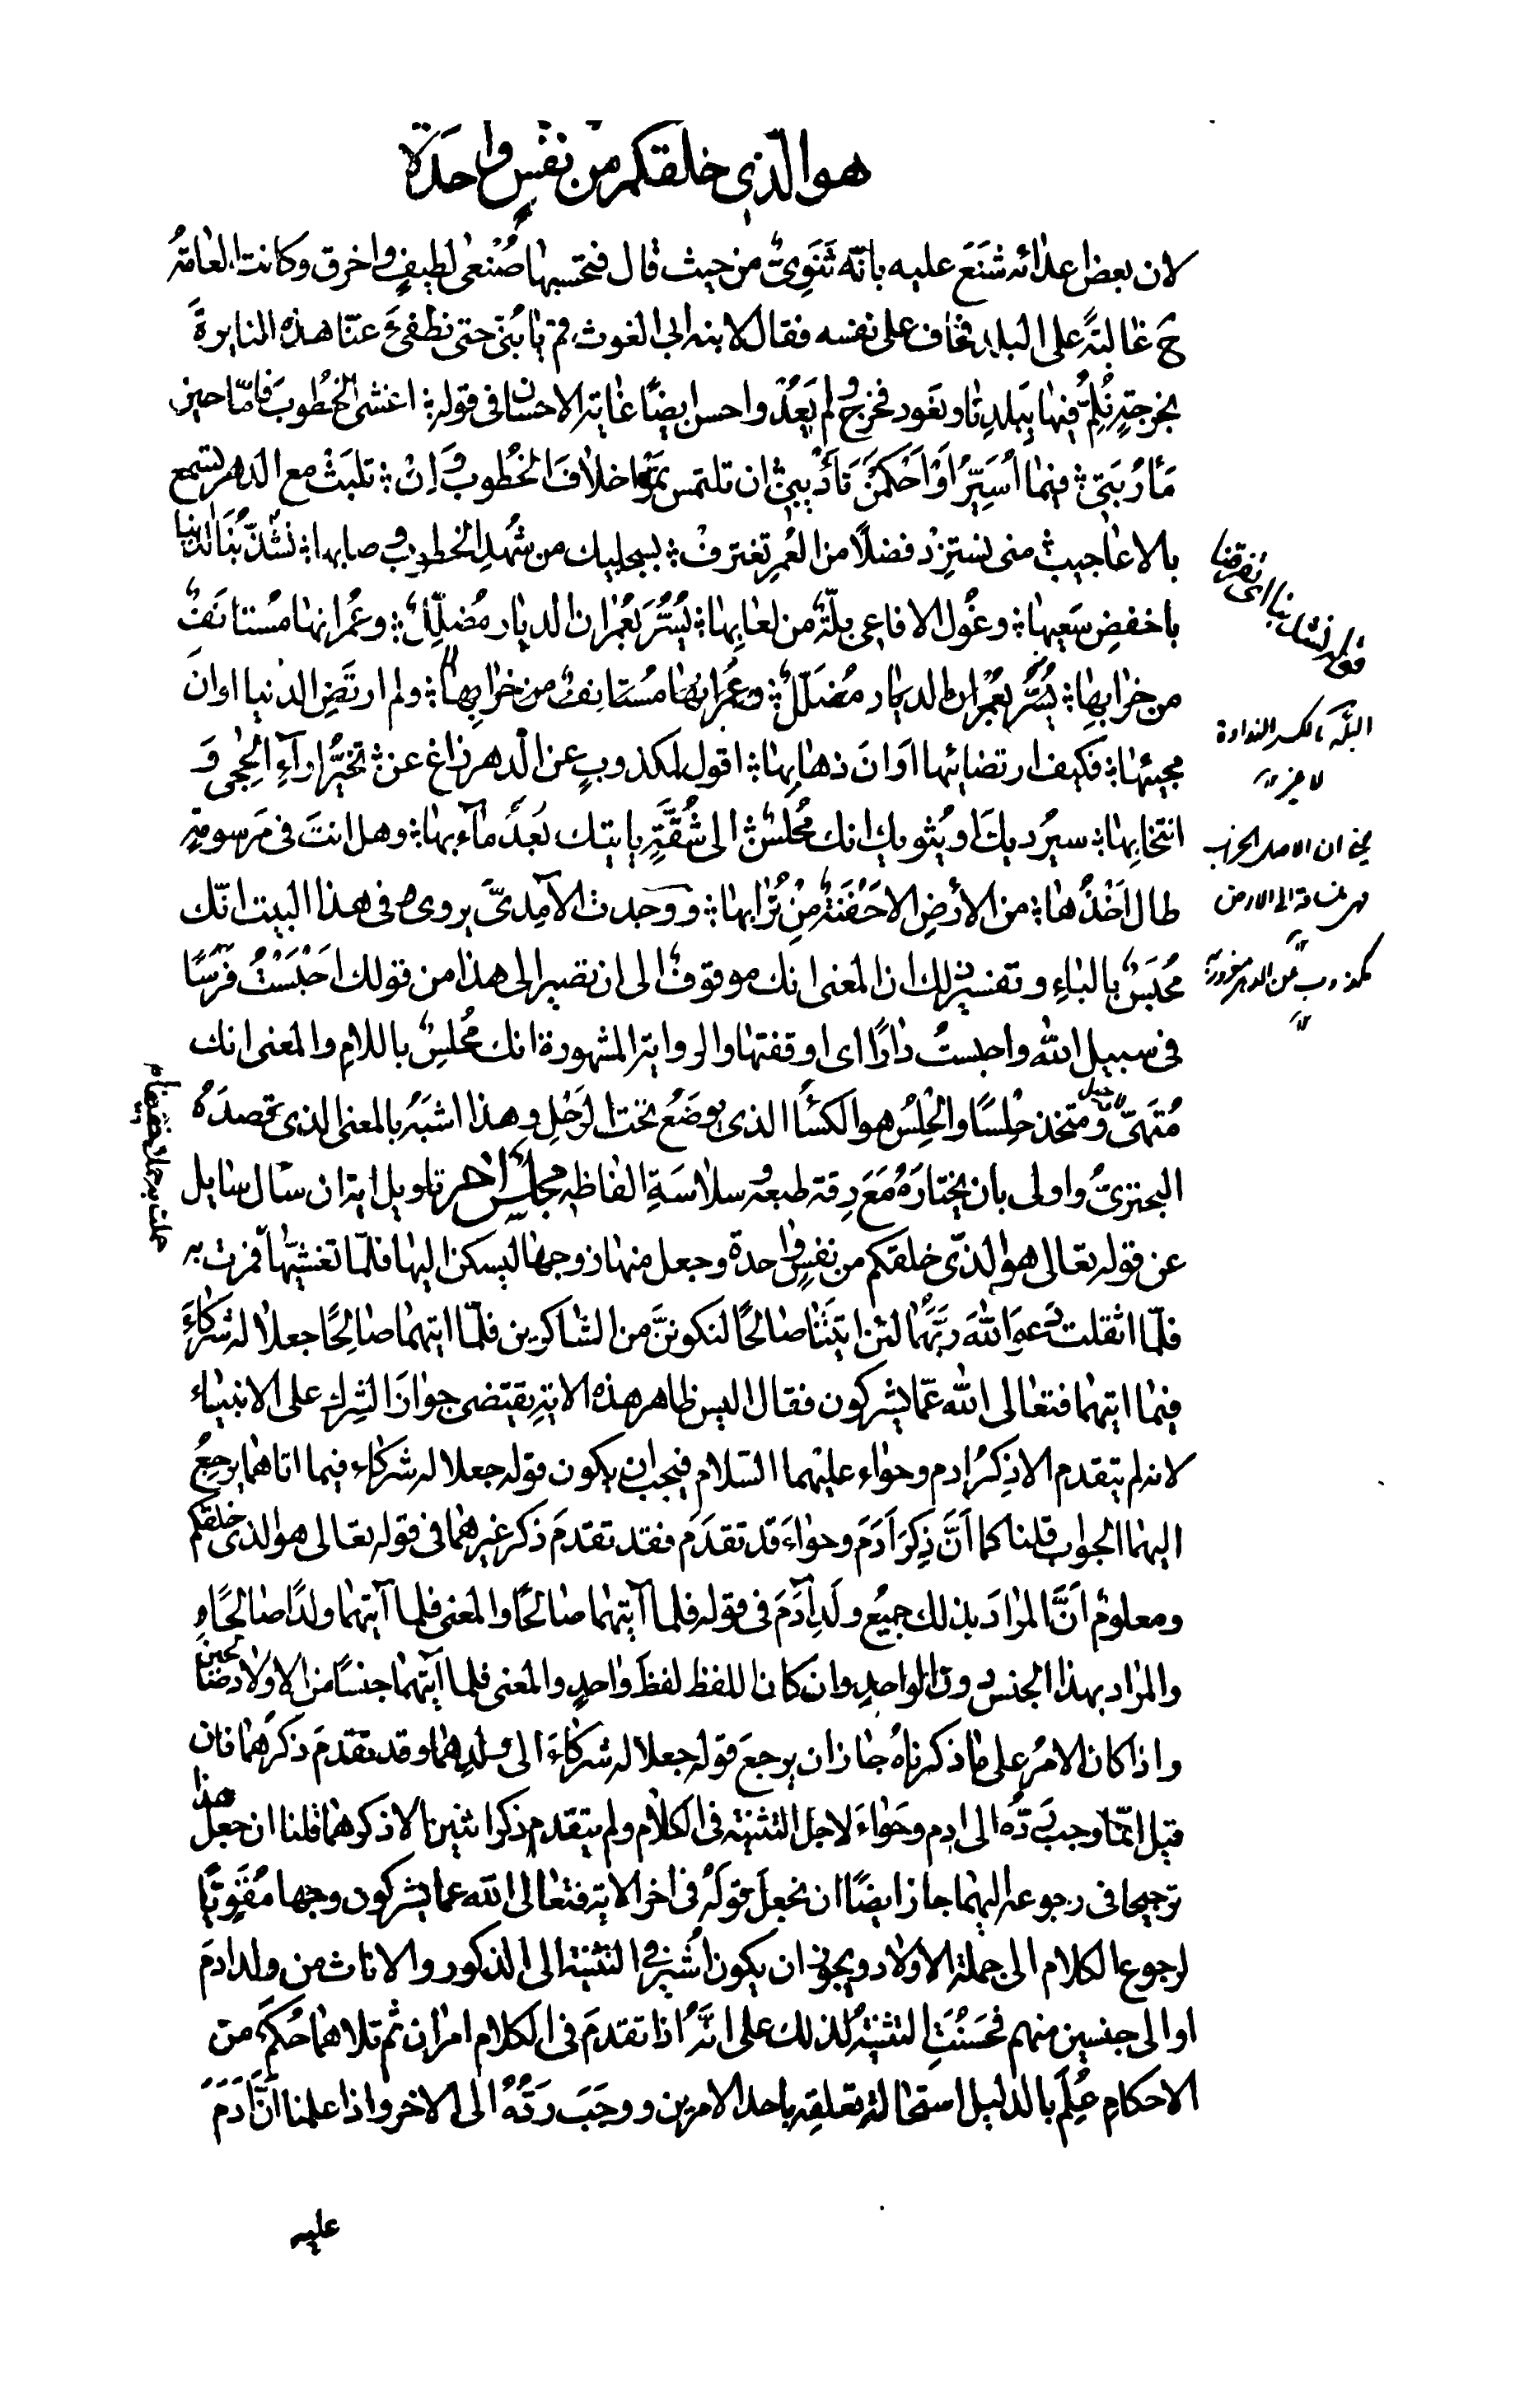 هو الذي خلقكم من نفس واحدة
لان بعض اعدائه شنع عليه بانّه ثنويّ من حيث قال فتحسبها صُنعى لطيف واخرق وكانت العامّة
ح غالبةً على البلد فخاف على نفسه فقال لابنه ابى الغوث قم يا بُنىّ حتى نطفئ عنّا هذه النايرة
بخرجةٍ نُلِمُّ فيها ببلدنا ونعود فخرج ولم يَعُدْ واحسن ايضًا غاية الاحسان فى قوله اغشى الخطوبَ فامّا حين
مَأرُبَتى فيما اُسَيِّرُ او اَحْكَمْنَ تَأديبىْ ان تلتمس تمْرِ اخلافَ الخطوب وَاِنْ تلبَثْ مع الدهر تسمع
بالاعاجيبْ متى تستزِدْ فضلًا من العُمرِ تغترفْ بسجليك من شُهدِ الخطوب وصابها تشذّ بُنَا الدنيا
باخفضِ سَعيها وغُول الافاعى بلّةٌ من لعابها يُسَرُّ بعُمران الديار مُضَلّلٌ وعُمرانها مُستانَفٌ
من خرابها يُسَرُّ بعُمران الديار مُضَلّلٌ وعُمرانها مُستانِفٌ من خرابها ولم ارتضِ الدنيا اوانَ
مجيئها فكيف ارتضائيها اوَانَ ذهابها اقول لمكذوبٍ عن الدهر زاغ عن تخيُّر اراءِ الحِجى وَ
انتخابها سيُرديكَ او يُثويك انك مُحلسٌ الى شُقّةٍ يابيك بَعدَ مآءبها وهل انتَ فى مَرسومةٍ
طال اَخْذُها من الأرضِ الا حَفْنَةٌ مِنْ تُرابها ووجدت الآمِدىَّ يروى فى هذا البيت انّك
مُحبَسٌ بالباءِ وتفسير ذلك ان المعنى انك موقوف الى ان تصير الى هذا من قولك احبَسْتُ فرَسًا
فى سبيل الله واحبستُ دارًا اى اوقفتها والرواية المشهورة انك مُحلسٌ باللام والمعنى انك
مُتهيّ ومتخذ حِلسًا والحِلسُ هو الكساُ الذى يوضَعُ تحت الرَحْلِ وهذا اشبَهُ بالمعنى الذى قصدَهُ
البحترىُّ واولى بان يختارَهُ مَعَ دِقة طبعه وسلاسَةِ الفاظه مجلس اخر تاويل اية ان سال سايل
عن قوله تعالى هو الذى خلقكم من نفسٍ واحدة وجعل منها زوجها ليسكن اليها فلمّا تغشيّها فمرت به
فلمّا اثقلت دَعوَ اللهَ ربَّهُما لئن اتيتَنا صالحًا لنكوننَّ من الشاكرين فلمّا اتيهما صالِحًا جعلا له شركاءَ
فيما اتيهما فتعالى الله عمّا يشركون فقال اليس ظاهر هذه الاية يقتضى جوازَ الشرك على الانبياء
لانه لم يتقدم الا ذِكرُ ادم وحواء عليهما السّلام فيجب ان يكون قوله جعلا له شركاء فيما اتاهما يرجعُ
اليهما الجواب قلنا كما اَنَّ ذِكرَ آدَمَ وحواءَ قد تقدّم فقد تقدمَ ذكر غيرهما فى قوله تعالى هو الذى خلقكم
ومعلومٌ اَنَّ المرادَ بذلك جميع ولد آدَمَ فى قوله فلما آتيهما صالحًا والمعنى فلما آتيهما ولدًا صالحًا
والمراد بهذا الجنس دون الواحدِ وان كان اللفظ لفظَ واحدٍ والمعنى فلما آتيهما جنسًا من الاولاد صالحين
واذا كان الامرُ على ما ذكرناهُ جاز ان يرجعَ قوله جعلا له شركاءَ الى ولدِهما وقد تقدمَ ذكرُهُما فان
قيل انّما وجب ردُّه الى ادم وحواءَ لاجل التثنية فى الكلام ولم يتقدم ذكر اثنين الا ذكرهما قلنا ان جعل هذا
ترجيحا فى رجوعه اليهما جاز ايضًا ان نجعل قولَهُ فى اخر الاية فتعالى الله عما يشركون وجها مُقَوِيًّا
لرجوع الكلام الى جملة الاولاد ويجوز ان يكون اُشير فى التثنية الى الذكور والاناث من ولد ادمَ
او الى جنسين منهم فحَسُنَتِ التثنية لذلك على انّهُ اذا تقدمَ فى الكلام امران ثم تلاهما حُكمٌ من
الاحكام عُلِمَ بالدليل استحالة تعلقِهِ باحد الامرين ووجَبَ ردُّهُ الى الاخر واذا علمنا اَنَّ ادَمَ
عليه
البلّة بالكسر النداوة
لا غير
يعنى ان الاصل الخراب